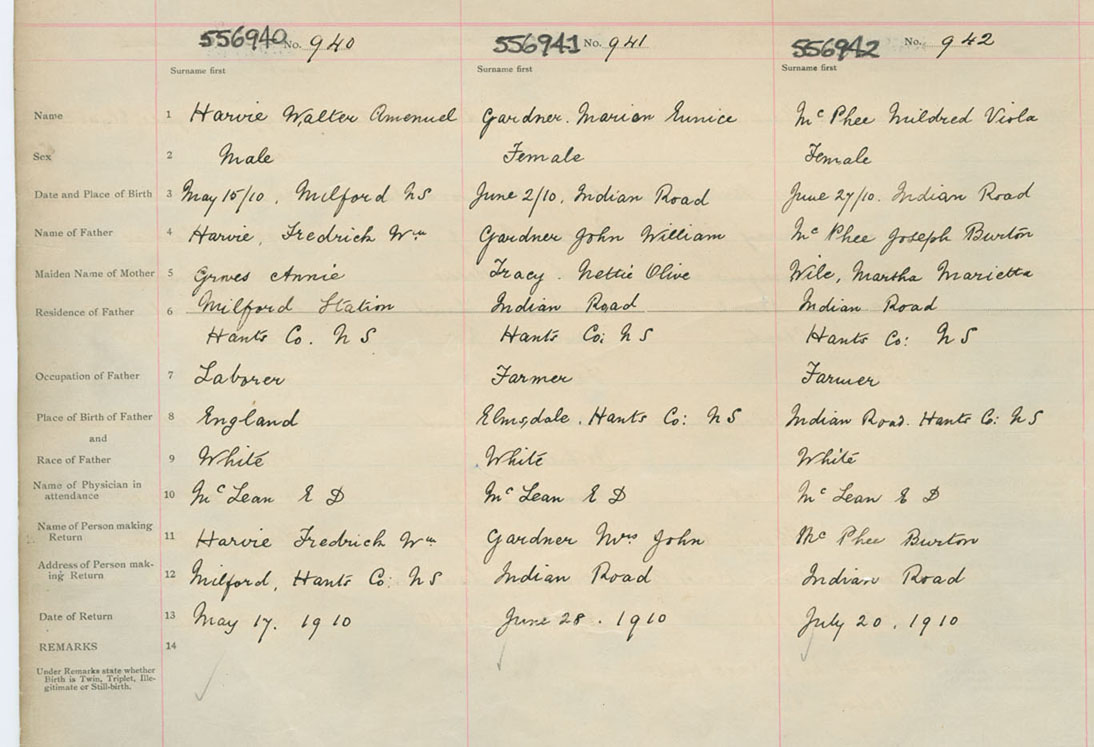 556940 No. 940 556941 No. 941 556942 No. 942
Surname first Surname first Surname first
Name 1 Harvie Walter Amenuel Gardner. Marian Eunice Mc Phee Mildred Viola
Sex 2 Male Female Female
Date and Place of Birth 3 May 15/10, Milford NS June 2/10, Indian Road June 27/10. Indian Road
Name of Father 4 Harvie, Fredrick Wm Gardner John William Mc Phee Joseph Burton
Maiden Name of Mother 5 Graves Annie Tracy. Nettie Olive Wile, Martha Marietta
Residence of Father 6 Milford Station Indian Road Indian Road
Hants Co. NS Hants Co: NS Hants Co: NS
Occupation of Father 7 Laborer Farmer Farmer
Place of Birth of Father 8 England Elmsdale, Hants Co: NS Indian Road. Hants Co: NS
and
Race of Father 9 White White White
Name of Physician in
attendance 10 Mc Lean E D Mc Lean E D Mc Lean E D
Name of Person making
Return 11 Harvie Fredrick Wm Gardner Mrs John Mc Phee Burton
Address of Person mak-
ing Return 12 Milford, Hants Co: NS Indian Road Indian Road
Date of Return 13 May 17. 1910 June 28. 1910 July 20, 1910
REMARKS 14
Under Remarks state whether
Birth is Twin, Triplet, Ille-
gitimate or Still-birth.